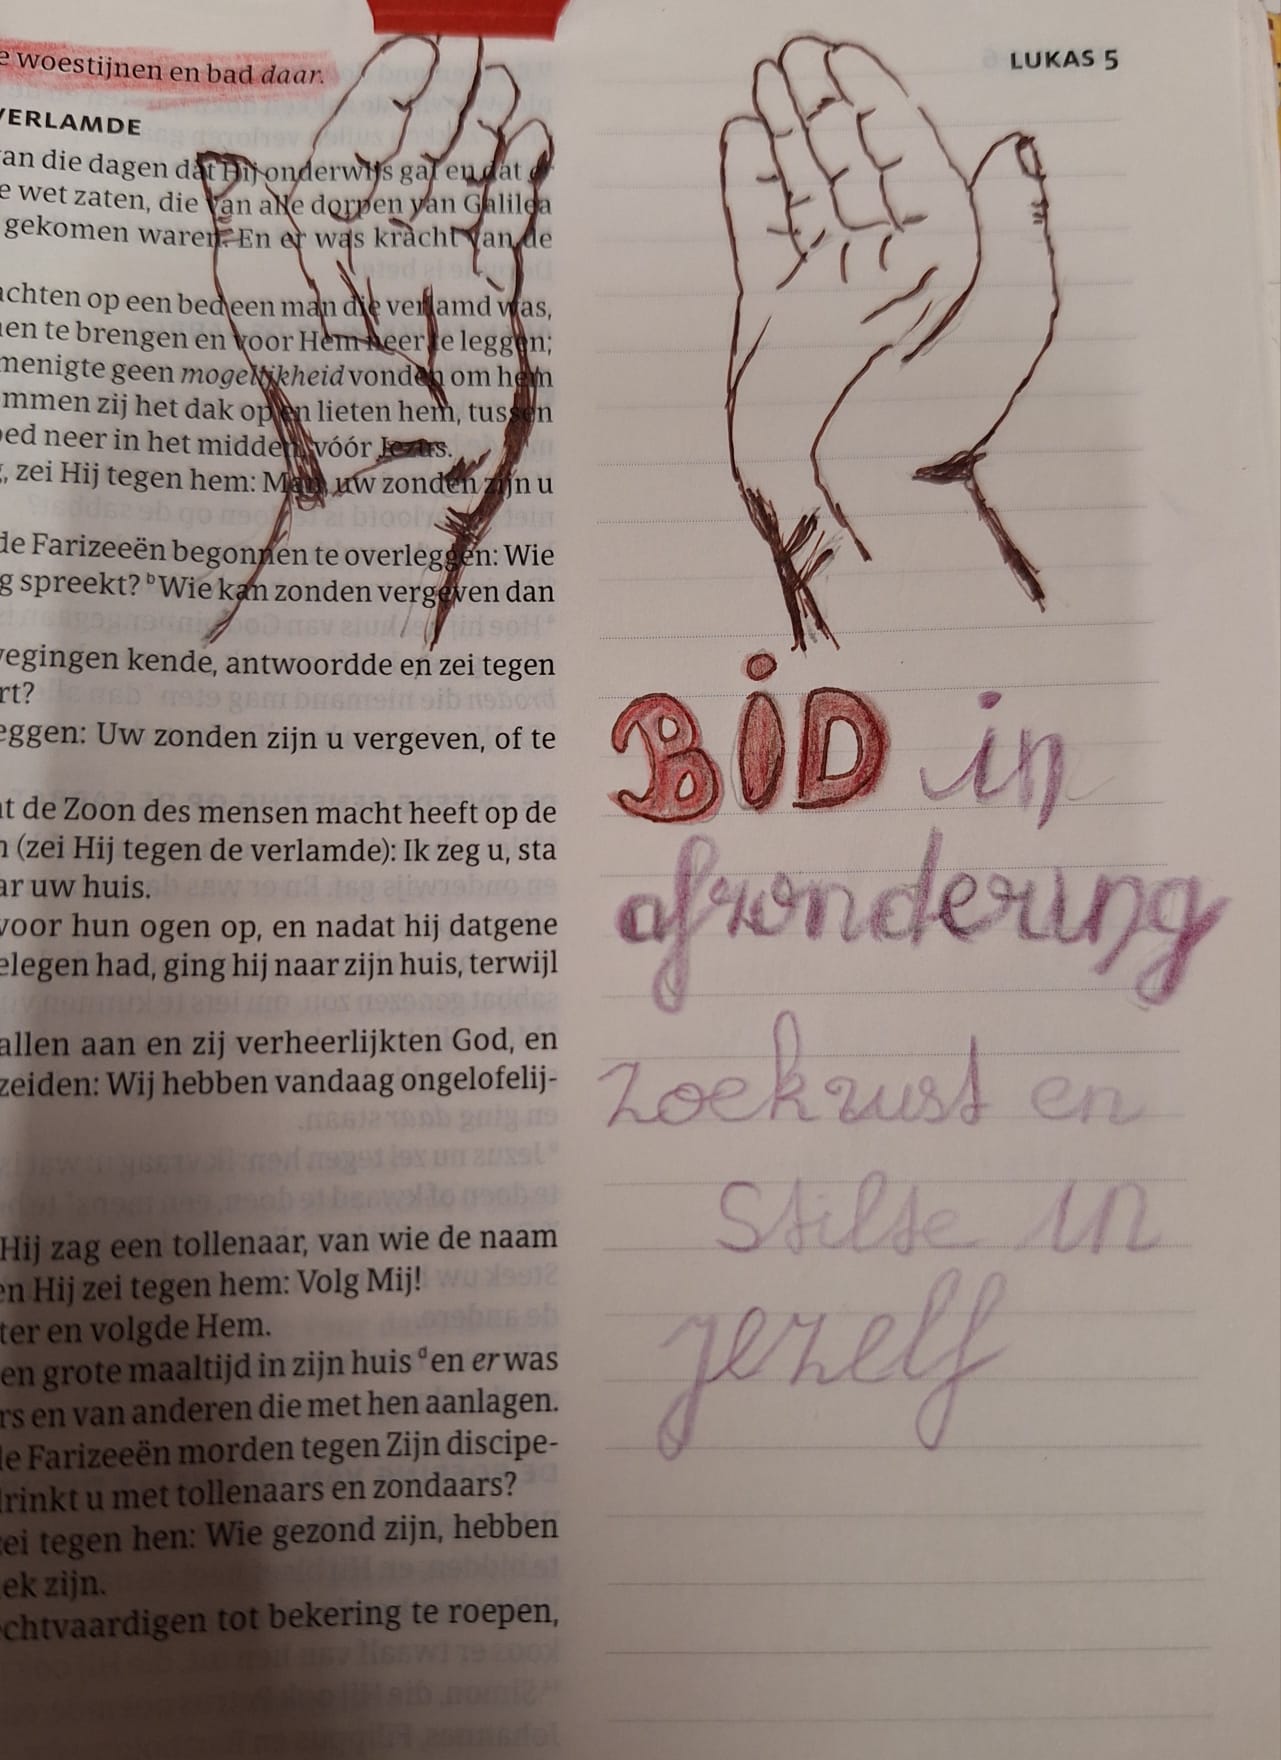 e woestijnen en bad daar.
LUKAS 5
VERLAMDE
van die dagen dat Hij onderwijs gaf en dat
e wet zaten, die van alle dorpen van Galilea
gekomen waren. En er was kracht van de
achten op een bed een man die verlamd was,
nen te brengen en voor Hem neer te leggen;
menigte geen mogelijkheid vonden om hem
mmen zij het dak op en lieten hem, tussen
bed neer in het midden, vóór Jezus.
, zei Hij tegen hem: Man, uw zonden zijn u
de Farizeeën begonnen te overleggen: Wie
g spreekt? ᵇWie kan zonden vergeven dan
wegingen kende, antwoordde en zei tegen
rt?
eggen: Uw zonden zijn u vergeven, of te
at de Zoon des mensen macht heeft op de
n (zei Hij tegen de verlamde): Ik zeg u, sta
ar uw huis.
voor hun ogen op, en nadat hij datgene
elegen had, ging hij naar zijn huis, terwijl
allen aan en zij verheerlijkten God, en
zeiden: Wij hebben vandaag ongelofelij-
Hij zag een tollenaar, van wie de naam
en Hij zei tegen hem: Volg Mij!
ter en volgde Hem.
en grote maaltijd in zijn huis ᵈen er was
rs en van anderen die met hen aanlagen.
de Farizeeën morden tegen Zijn discipe-
drinkt u met tollenaars en zondaars?
zei tegen hen: Wie gezond zijn, hebben
ek zijn.
echtvaardigen tot bekering te roepen,
BiD in
afzondering
zoek rust en
stilte in
jezelf